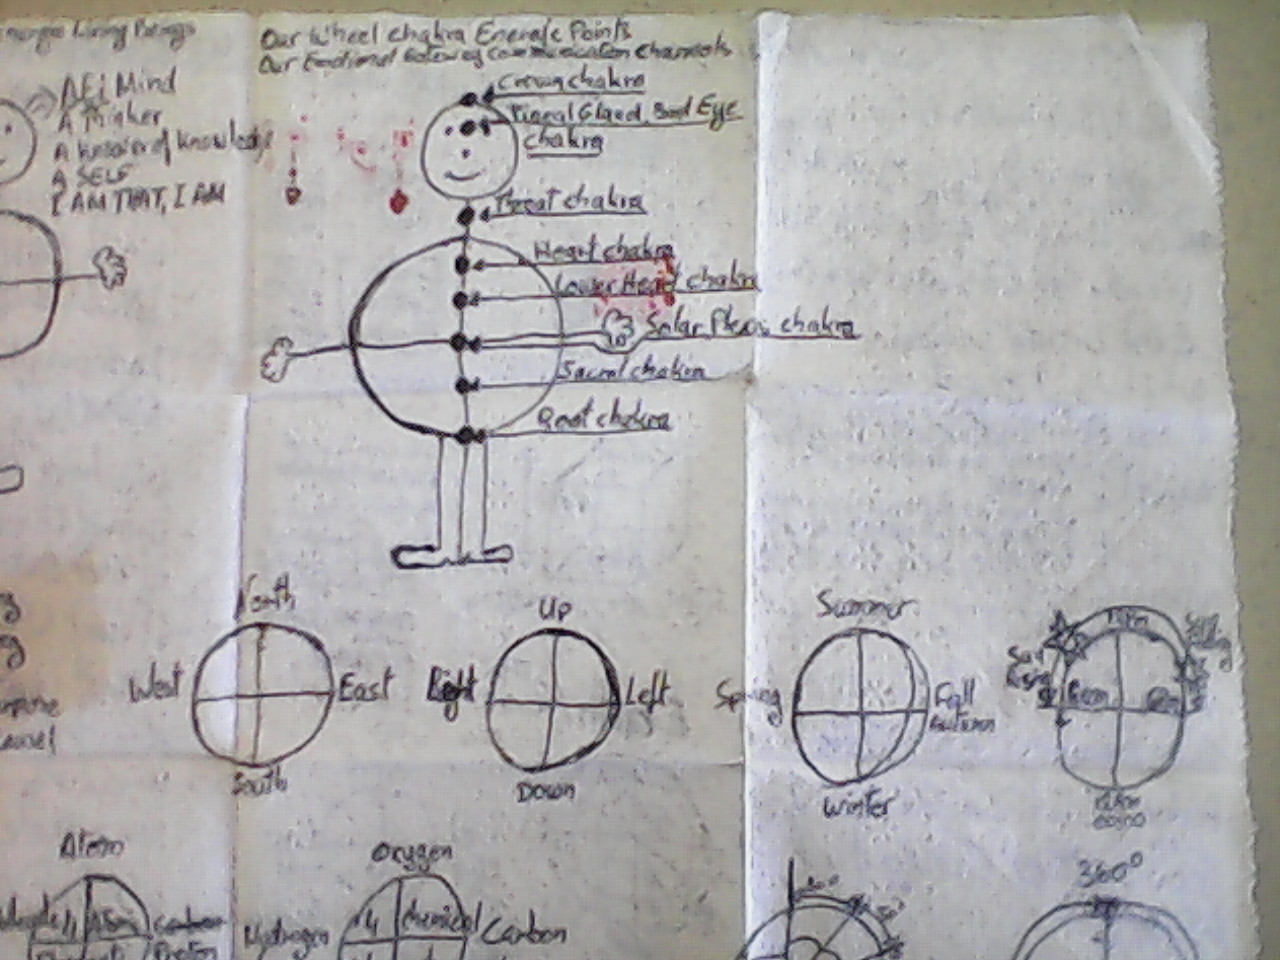 Living Beings
Our Wheel chakra Energic Points
Our Emotional Gateway Communication Channels
Mind
A
A knower of knowledge
A SELF
I AM THAT, I AM
Crown chakra
Pineal Gland, Eye
chakra
Throat chakra
Heart chakra
Lower Heart chakra
Solar Plexus chakra
Sacral chakra
Root chakra
North
West
East
South
Up
Right
Left
Down
Summer
Spring
Fall
Autumn
Winter
Sun
Rising
12pm
6am
6pm
12Am
Atom
Atom
Carbon
Proton
Oxygen
Hydrogen
chemical
Carbon
360°